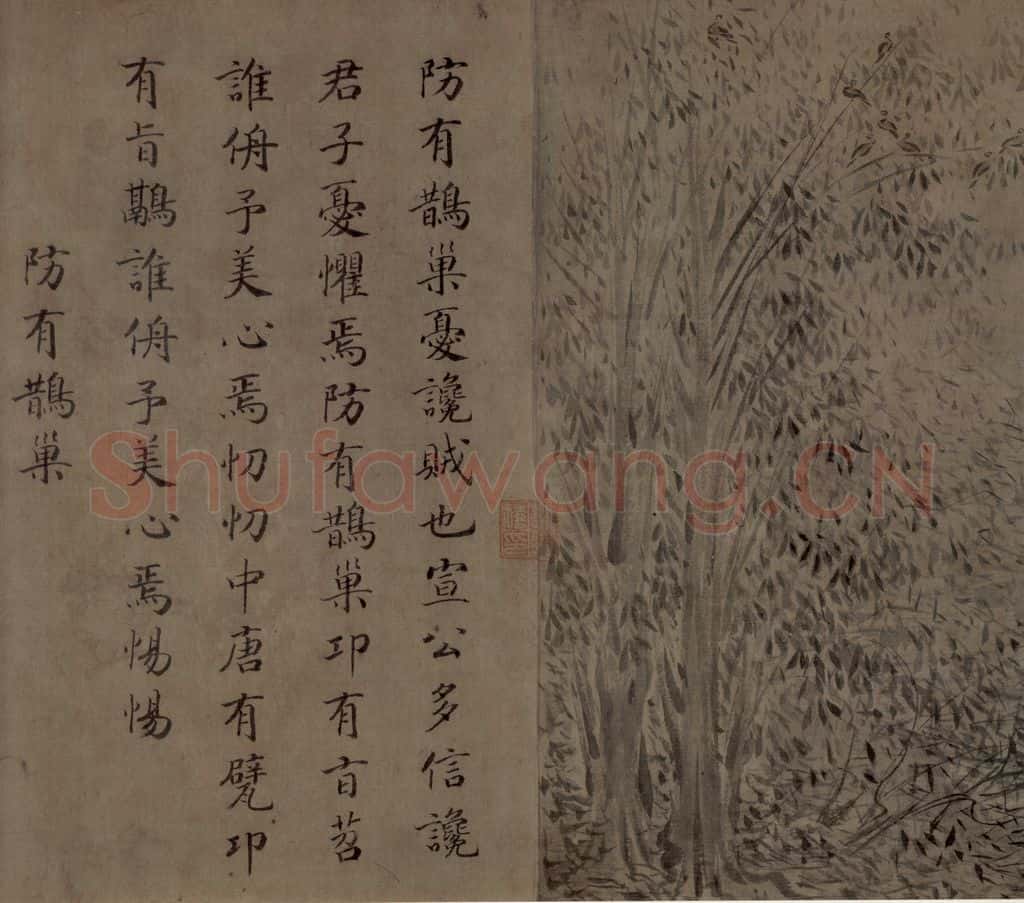 防有鵲巢憂讒賊也宣公多信讒
君子憂懼焉防有鵲巢卭有旨苕
誰侜予美心焉忉忉中唐有甓卭
有旨鷊誰侜予美心焉惕惕
防有鵲巢
Shufawang.CN